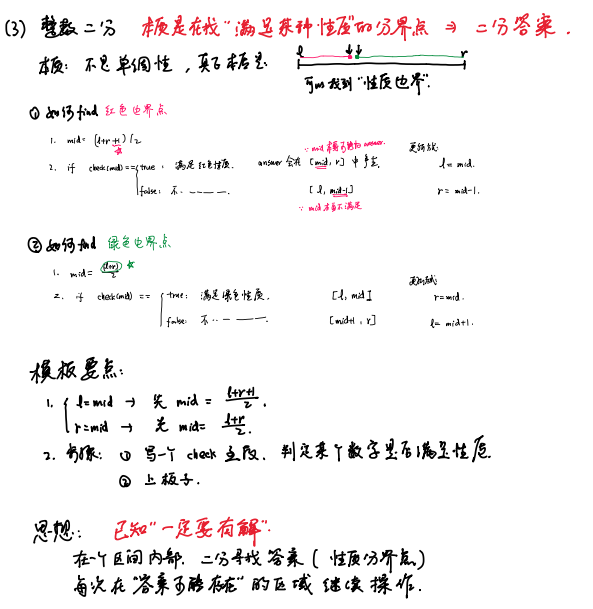 (3) 整数二分 本质是在找"满足某种性质"的分界点 ⇒ 二分答案.
本质: 不是单调性, 真正本质是: l r
可以找到"性质边界".
① 如何find 红色边界点
1. mid = (l+r+1)/2
2. if check(mid)== true: 满足红色性质. answer 会在 [mid, r] 中产生 l = mid.
∵ mid 本身可能为 answer. 更新方式
false: 不. [l, mid-1] r = mid-1.
∵ mid 本身不满足
② 如何find 绿色边界点
1. mid = (l+r)/2
2. if check(mid) == true: 满足绿色性质. [l, mid] r=mid.
false: 不.. [mid+1, r] l= mid+1.
模板要点:
1. l=mid → 先 mid = l+r+1/2.
r=mid → 先 mid= l+r/2.
2. 步骤: ① 写一个 check 函数, 判定某个数字是否满足性质
② 上板子.
思想: 已知"一定要有解".
在一个区间内部, 二分寻找答案 (性质分界点)
每次在"答案可能存在"的区域继续操作.